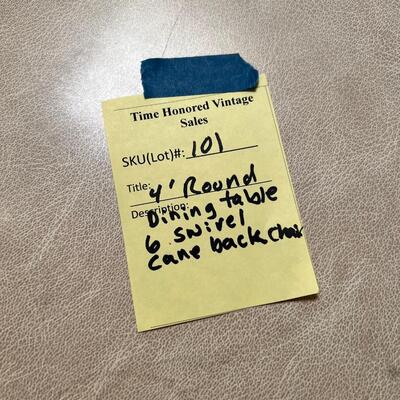 Time Honored Vintage
Sales
SKU(Lot)#: 101
Title: 4' Round
Description: Dining table
6 swivel
cane back chair